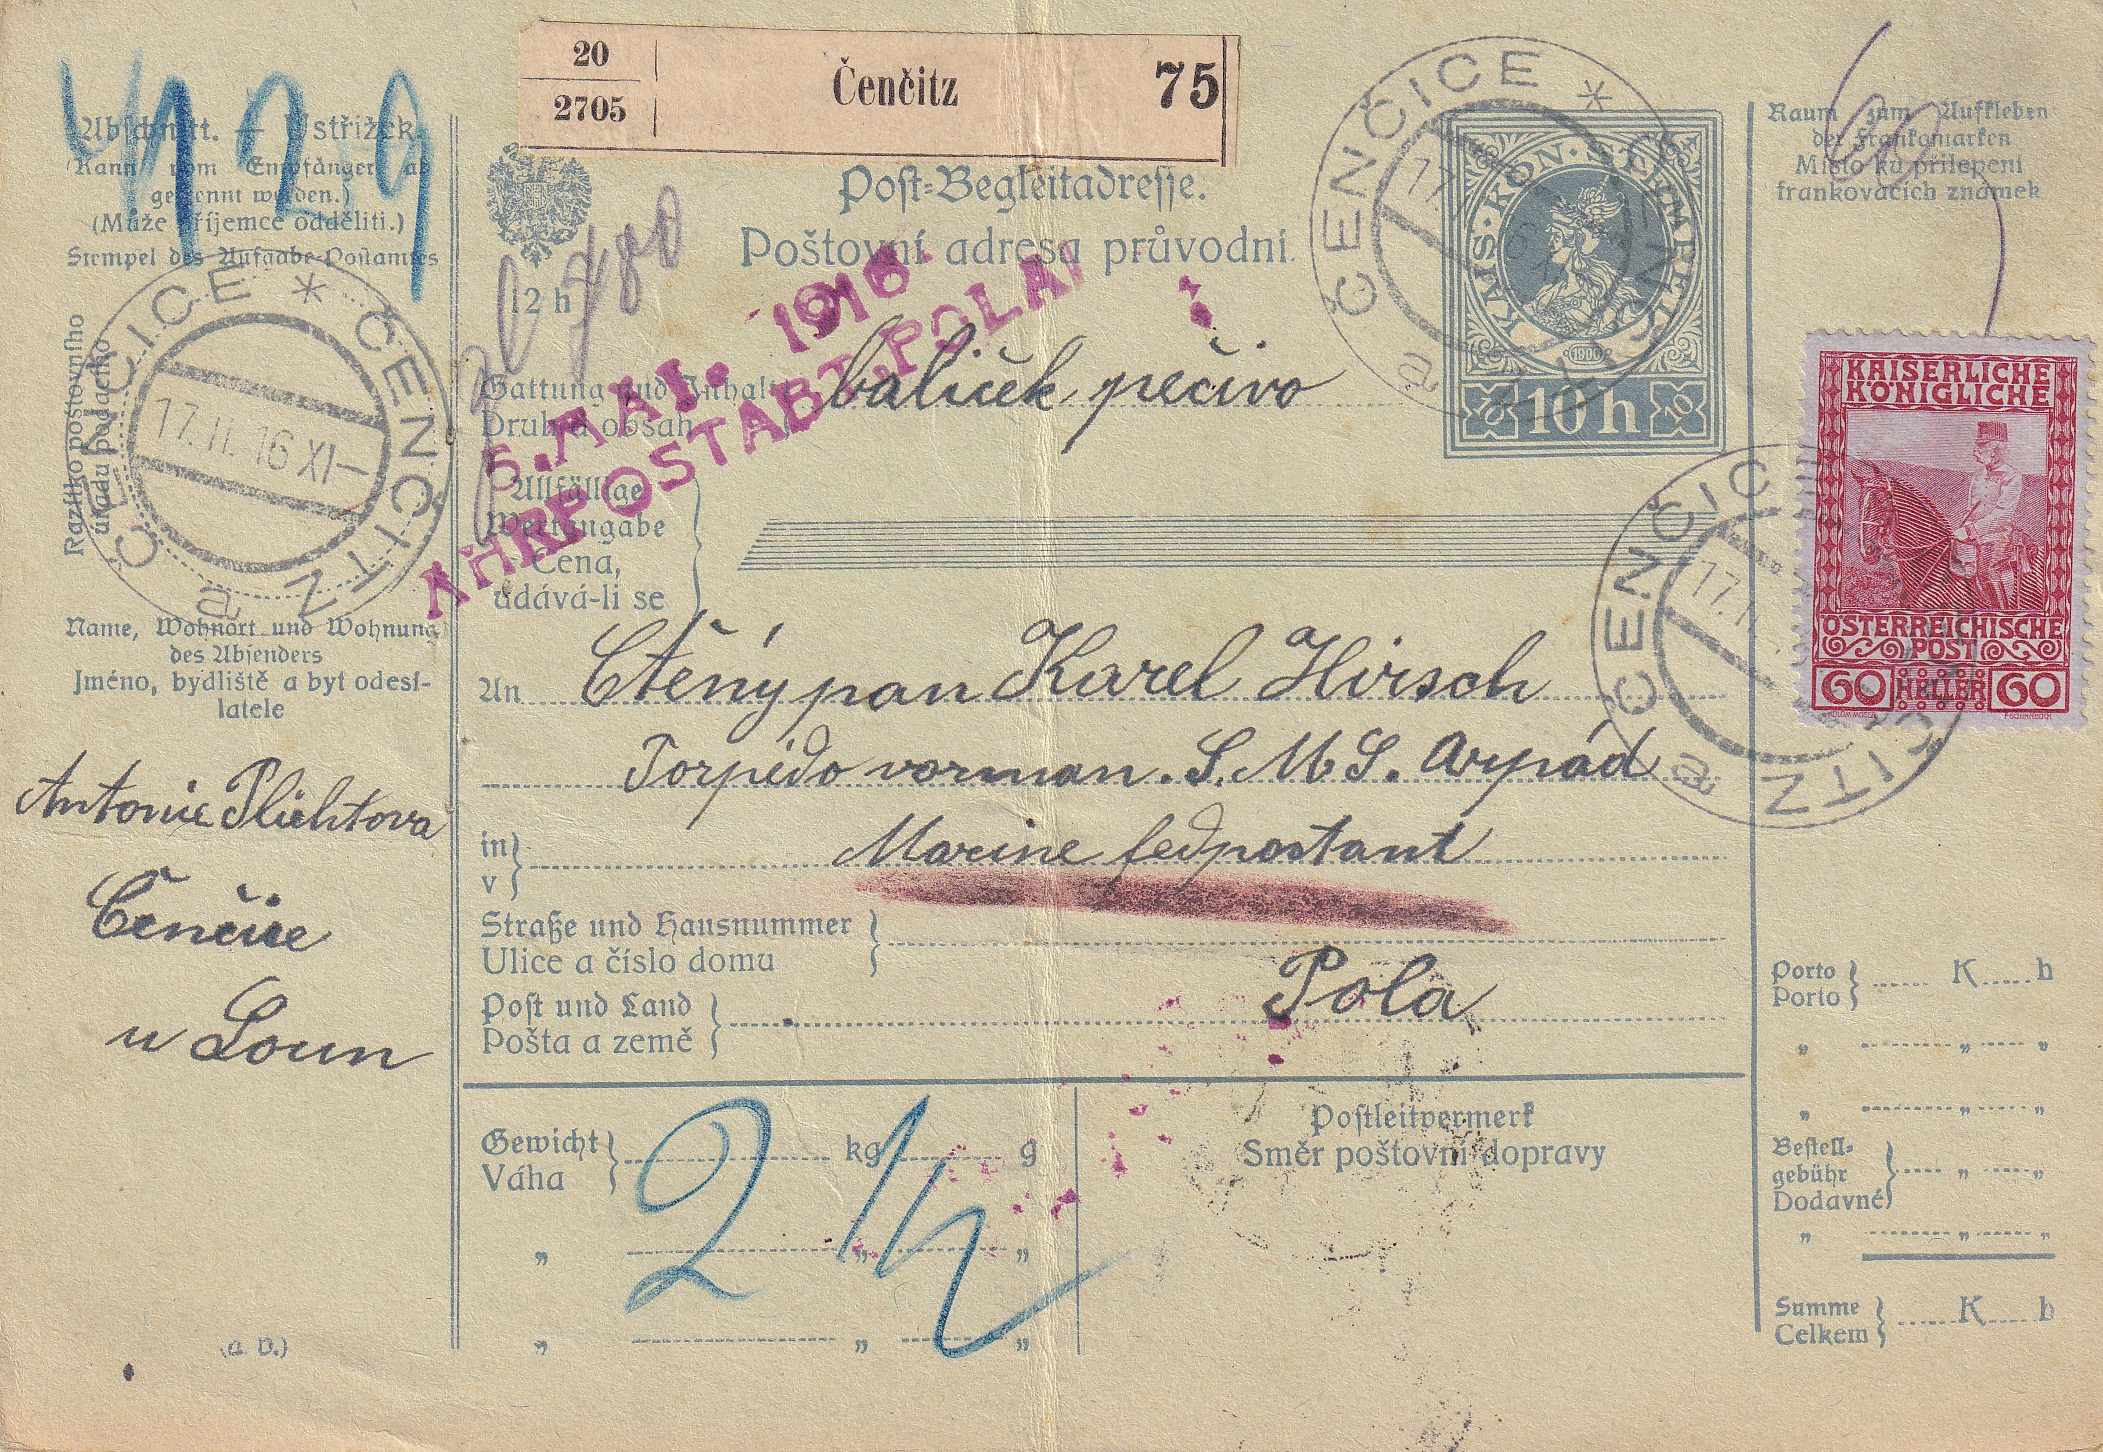 20
2705
Čenčitz
75
Abschnitt. — Ústřižek.
(Kann vom Empfänger ab
getrennt werden.)
(Může příjemce odděliti.)
Stempel des Aufgabe-Postamtes
Razítko poštovního
úřadu podacího
ČENČICE * ČENČITZ
a
17.II.16 XI—
Name, Wohnort und Wohnung
des Absenders
Jméno, bydliště a byt odesí-
latele
Antonie Plichtova
Čenčice
u Loun
(a D.)
Post-Begleitadresse.
Poštovní adresa průvodní.
12 h
1916
POSTABT. POLA
Gattung und Inhalt
Druh a obsah
balíček pečivo
Allfällige
Wertangabe
Cena,
udává-li se
An Ctěný pan Karel Hirsch
Torpédo vorman. S.M.S. Arpád
in
v
Marine fedpostant
Straße und Hausnummer
Ulice a číslo domu
Post und Land
Pošta a země
Pola
Gewicht
Váha
kg
g
2
Postleitvermerk
Směr poštovní dopravy
ČENČICE * ČENČITZ
a
KAIS·KÖN·STEMPEL
1900
10 10 h 10
Raum zum Aufkleben
der Frankomarken
Místo ku přilepení
frankovacích známek
60
KAISERLICHE
KÖNIGLICHE
ÖSTERREICHISCHE
POST
60 HELLER 60
ČENČICE
ČENČITZ
a
Porto
Porto
K h
Bestell-
gebühr
Dodavné
Summe
Celkem
K h